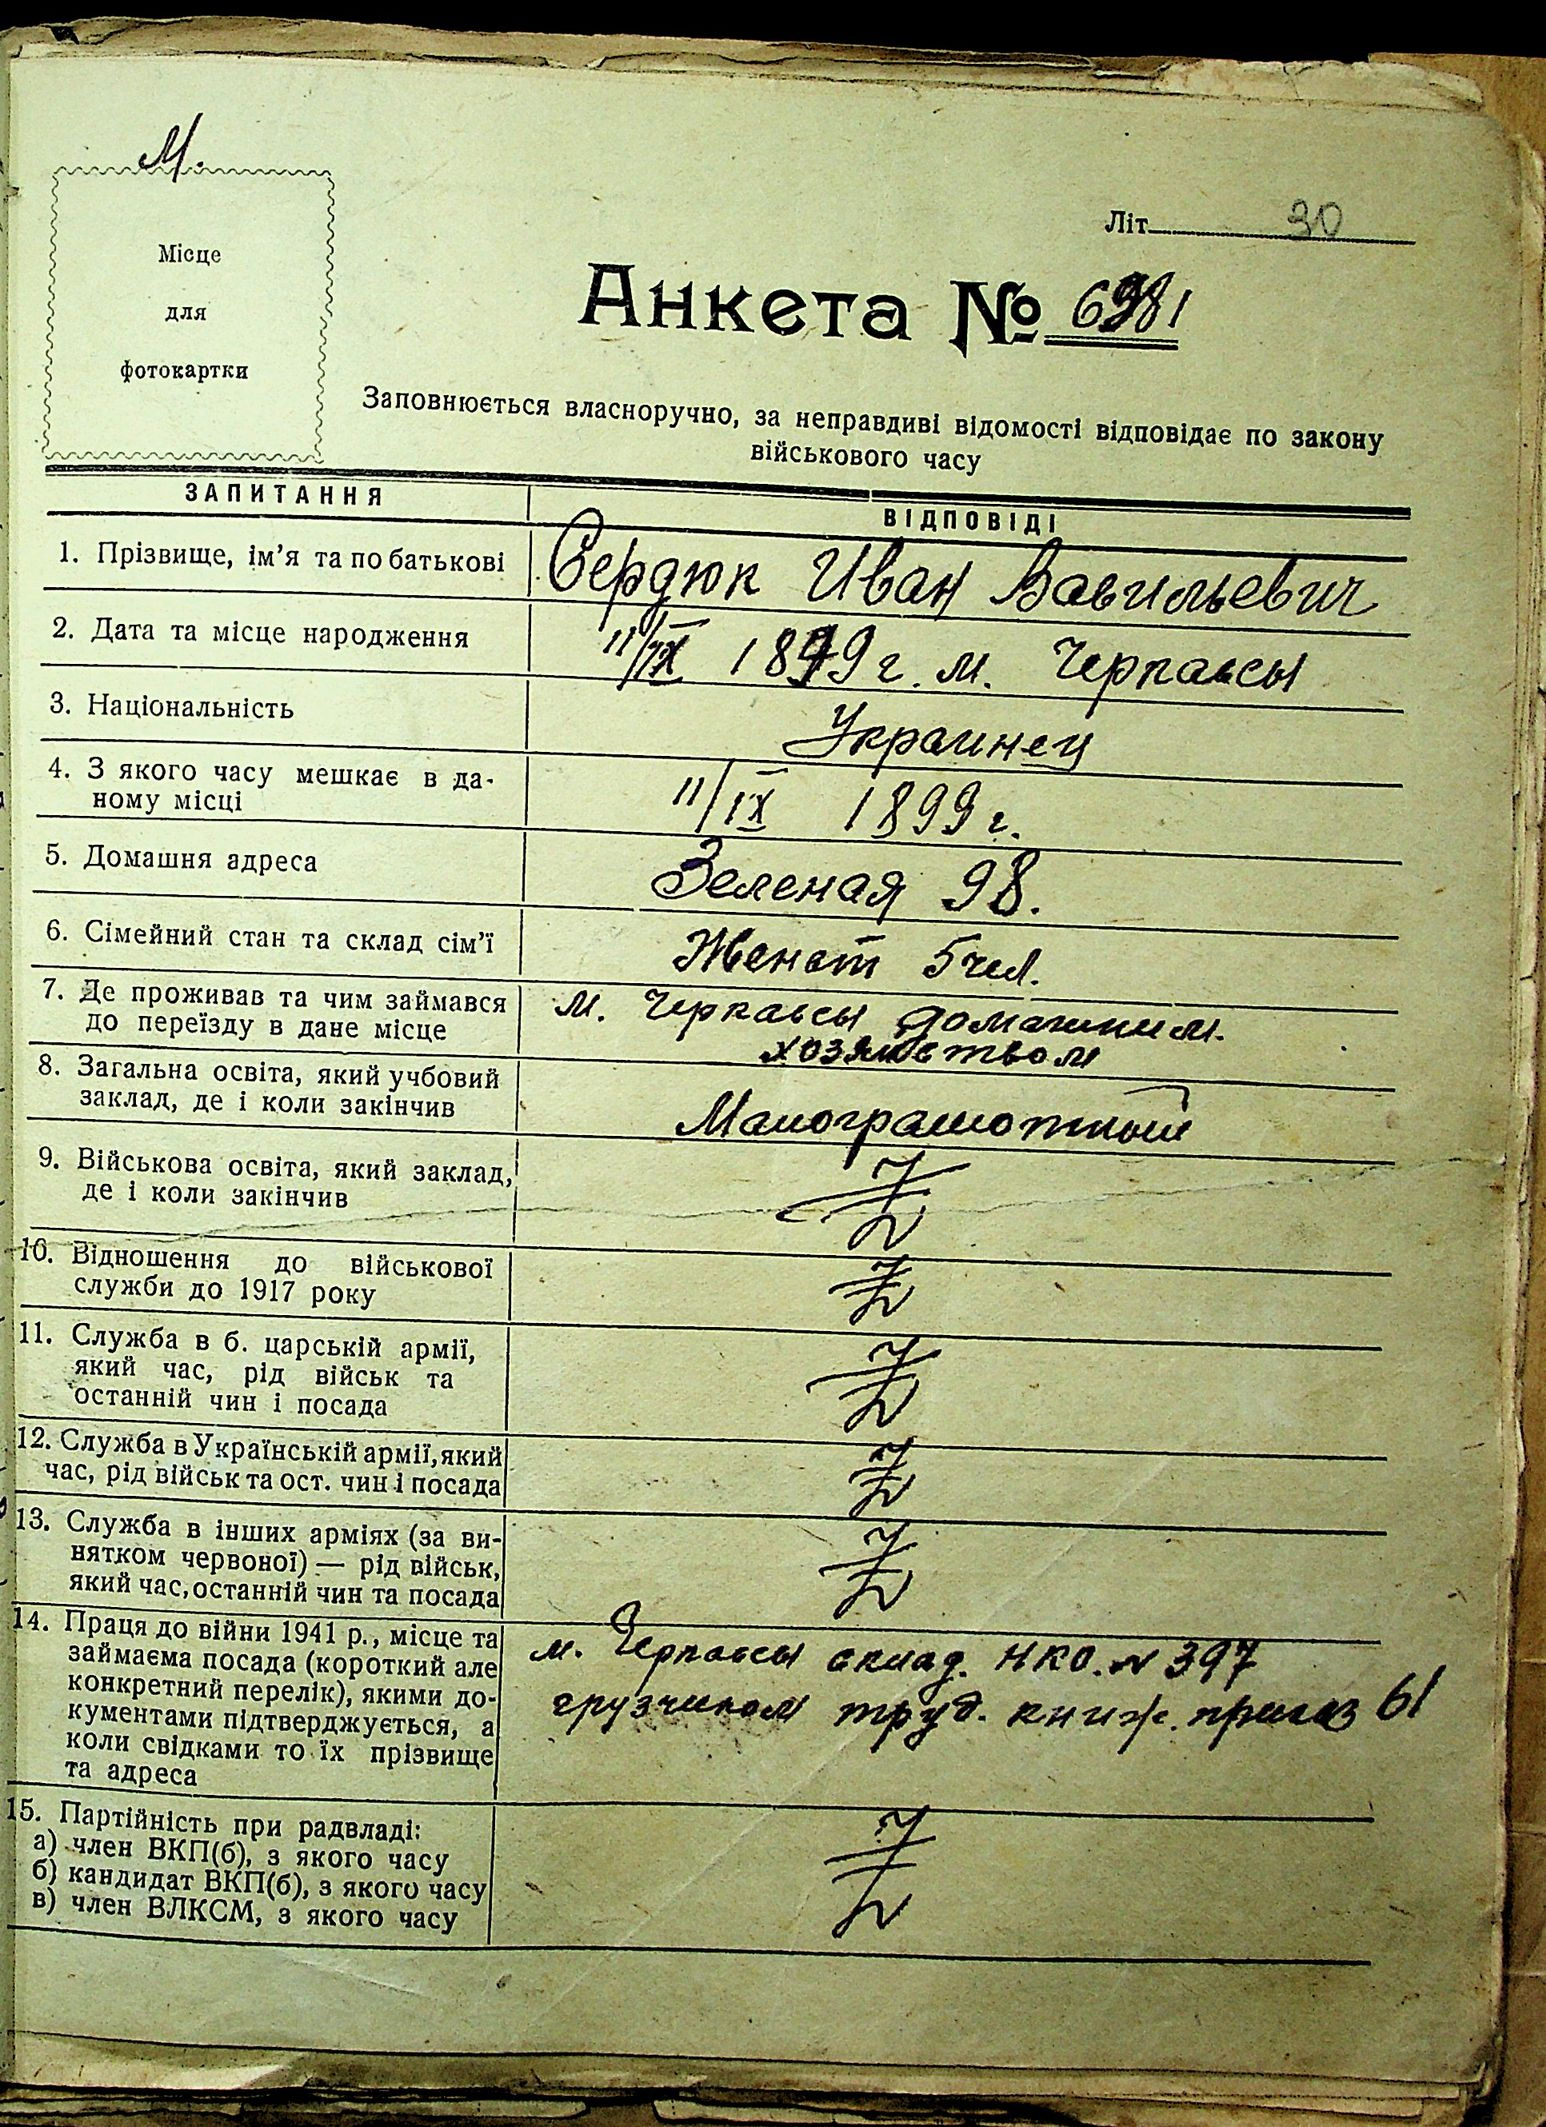 М.
Місце
для
фотокартки
Літ. 30
Анкета № 6981
Заповнюється власноручно, за неправдиві відомості відповідає по закону
військового часу
ЗАПИТАННЯ
ВІДПОВІДІ
1. Прізвище, ім'я та по батькові
Сердюк Иван Вавильевич
2. Дата та місце народження
11/IX 1899 г. м. Черкассы
3. Національність
Украинец
4. З якого часу мешкає в да-
ному місці
11/IX 1899 г.
5. Домашня адреса
Зеленая 98.
6. Сімейний стан та склад сім'ї
Женат 5 чел.
7. Де проживав та чим займався
до переїзду в дане місце
м. Черкассы домашним
хозяйством
8. Загальна освіта, який учбовий
заклад, де і коли закінчив
Малограмотный
9. Військова освіта, який заклад,
де і коли закінчив
10. Відношення до військової
служби до 1917 року
11. Служба в б. царській армії,
який час, рід військ та
останній чин і посада
12. Служба в Українській армії, який
час, рід військ та ост. чин і посада
13. Служба в інших арміях (за ви-
нятком червоної) — рід військ,
який час, останній чин та посада
14. Праця до війни 1941 р., місце та
займаєма посада (короткий але
конкретний перелік), якими до-
кументами підтверджується, а
коли свідками то їх прізвище
та адреса
м. Черкассы склад. НКО. № 397
грузчиком труд. книж. приказ 61
15. Партійність при радвладі:
а) член ВКП(б), з якого часу
б) кандидат ВКП(б), з якого часу
в) член ВЛКСМ, з якого часу